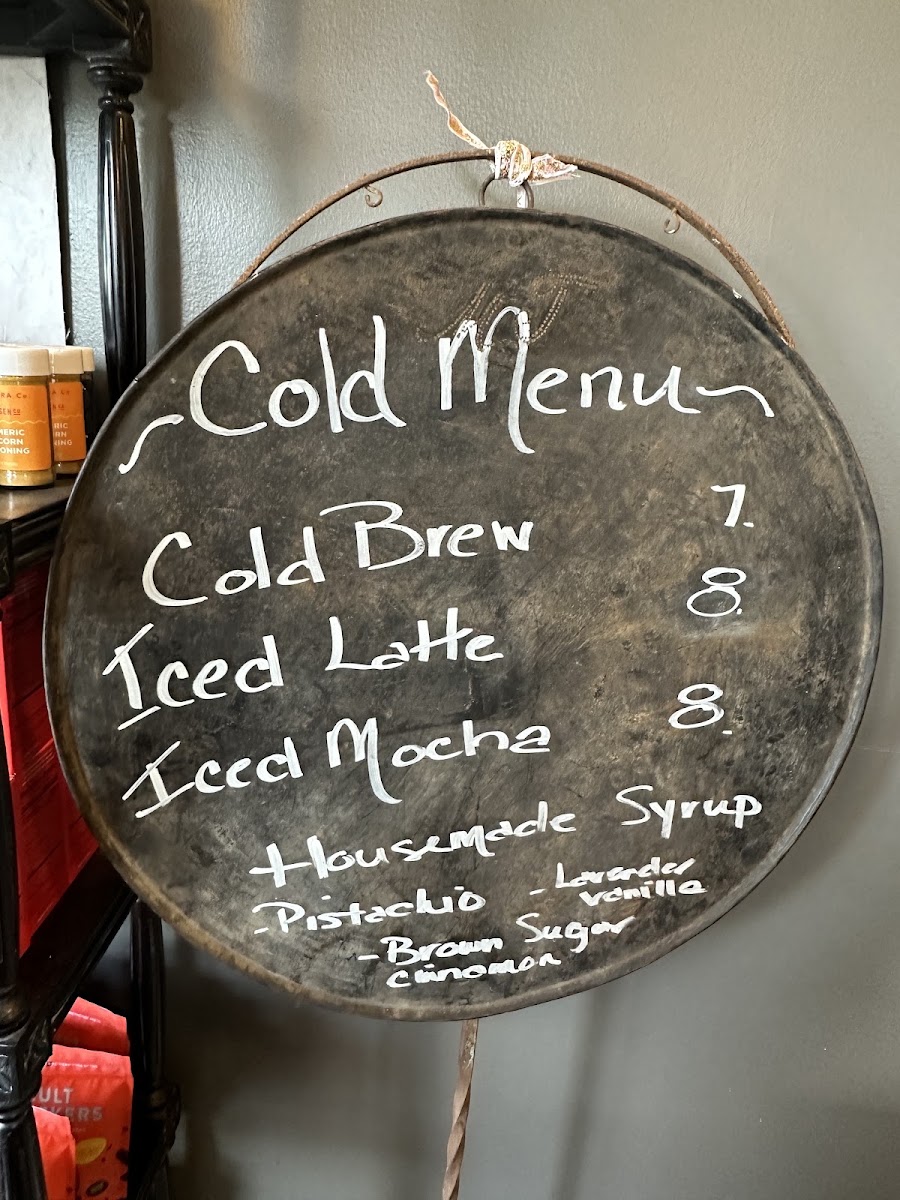 ~Cold Menu~
Cold Brew 7.
Iced Latte 8.
Iced Mocha 8.
Housemade Syrup
-Pistachio - Lavender
vanilla
-Brown Sugar
cinnamon